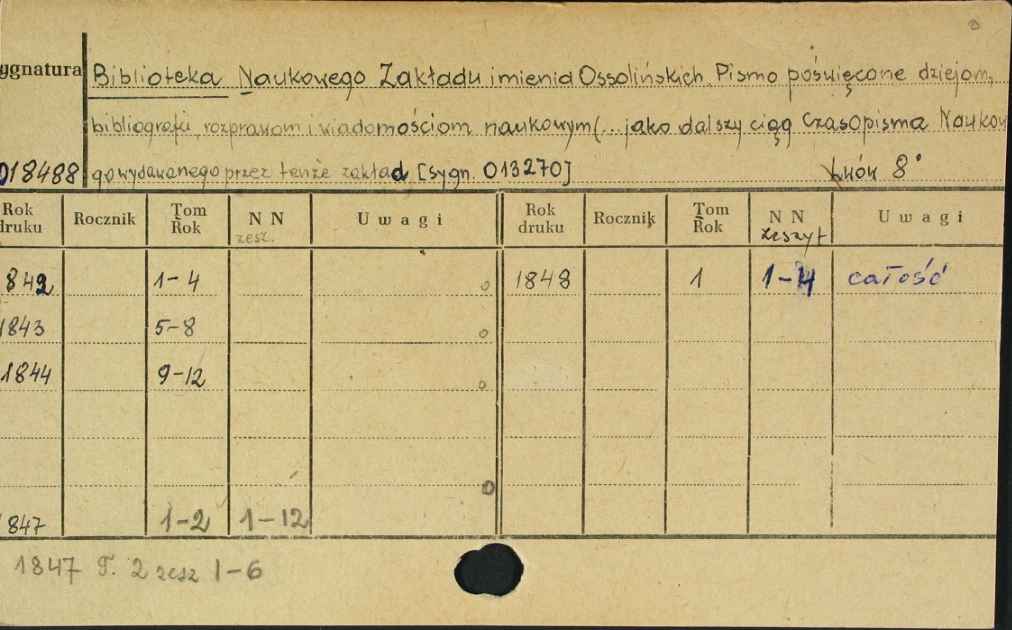 ygnatura Biblioteka Naukowego Zakładu imienia Ossolińskich. Pismo poświęcone dziejom,
bibliografii, rozprawom i wiadomościom naukowym (... jako dalszy ciąg Czasopisma Naukow
018488 gowydawanego przez tenże zakład, [sygn. 013270] Lwów 8°
Rok druku Rocznik Tom Rok NN zesz. Uwagi Rok druku Rocznik Tom Rok NN zeszyt Uwagi
842 1-4 1848 1 1-4 całość
1843 5-8
1844 9-12
847 1-2 1-12
1847 T. 2 zesz 1-6